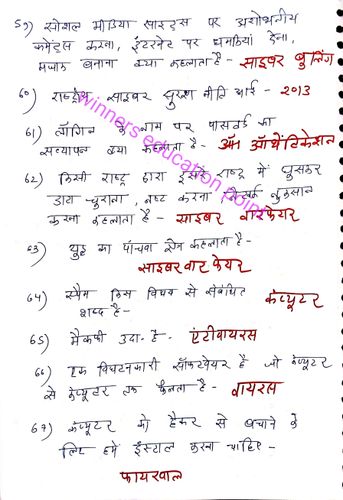 59) सोशल मीडिया साइट्स पर अशोभनीय
कमेंट्स करना, इंटरनेट पर धमकियां देना,
मजाक बनाना क्या कहलाता है - साइबर बुलिंग
60) राष्ट्रीय साइबर सुरक्षा नीति आई - 2013
61) लॉगिन के नाम पर पासवर्ड का
सत्यापन क्या कहलाता है - ऑथेंटिकेशन
62) किसी राष्ट्र द्वारा दूसरे राष्ट्र में घुसकर
डाटा चुराना, नष्ट करना, नुकसान
करना कहलाता है - साइबर वारफेयर
63) युद्ध का पांचवा क्षेत्र कहलाता है -
साइबर वार फेयर
64) स्पैम किस विषय से संबंधित
शब्द है - कंप्यूटर
65) मैकफी उदा. है - एंटीवायरस
66) एक विघटनकारी सॉफ्टवेयर है जो कंप्यूटर
से कंप्यूटर तक फैलता है - वायरस
67) कंप्यूटर को हैकर से बचाने के
लिए हमें इंस्टाल करना चाहिए -
फायरवाल
winners education point